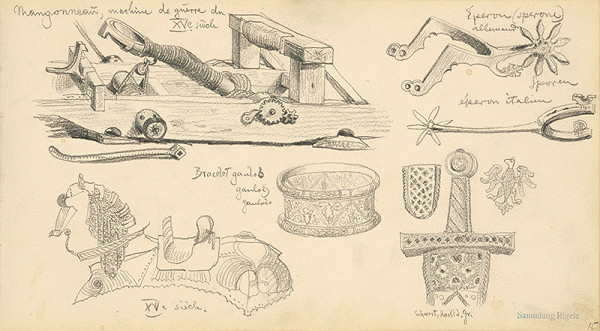 Mangonneau, machine de guerre du
XVe siècle
Eperon (sperone)
allemand
Sporen
eperon italien
Bracelet gaulob
gaulob
gaulois
XVe siècle.
Schwert,
Sammlung Rigele
15